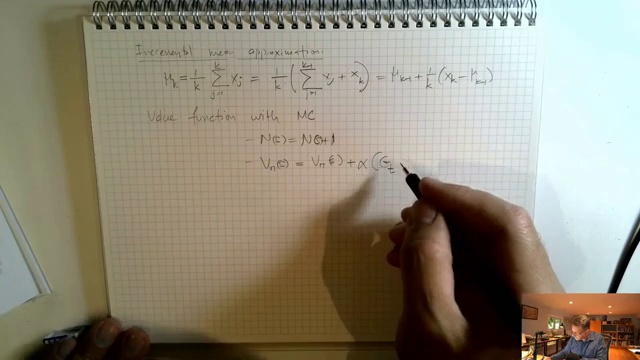 Incremental mean approximation:
μ_k = 1/k Σ_{j=1}^{k} x_j = 1/k ( Σ_{j=1}^{k-1} x_j + x_k ) = μ_{k-1} + 1/k (x_k − μ_{k-1})
Value function with MC
- N(s) = N(s)+1
- V_π(s) = V_π(s) + α(G_t